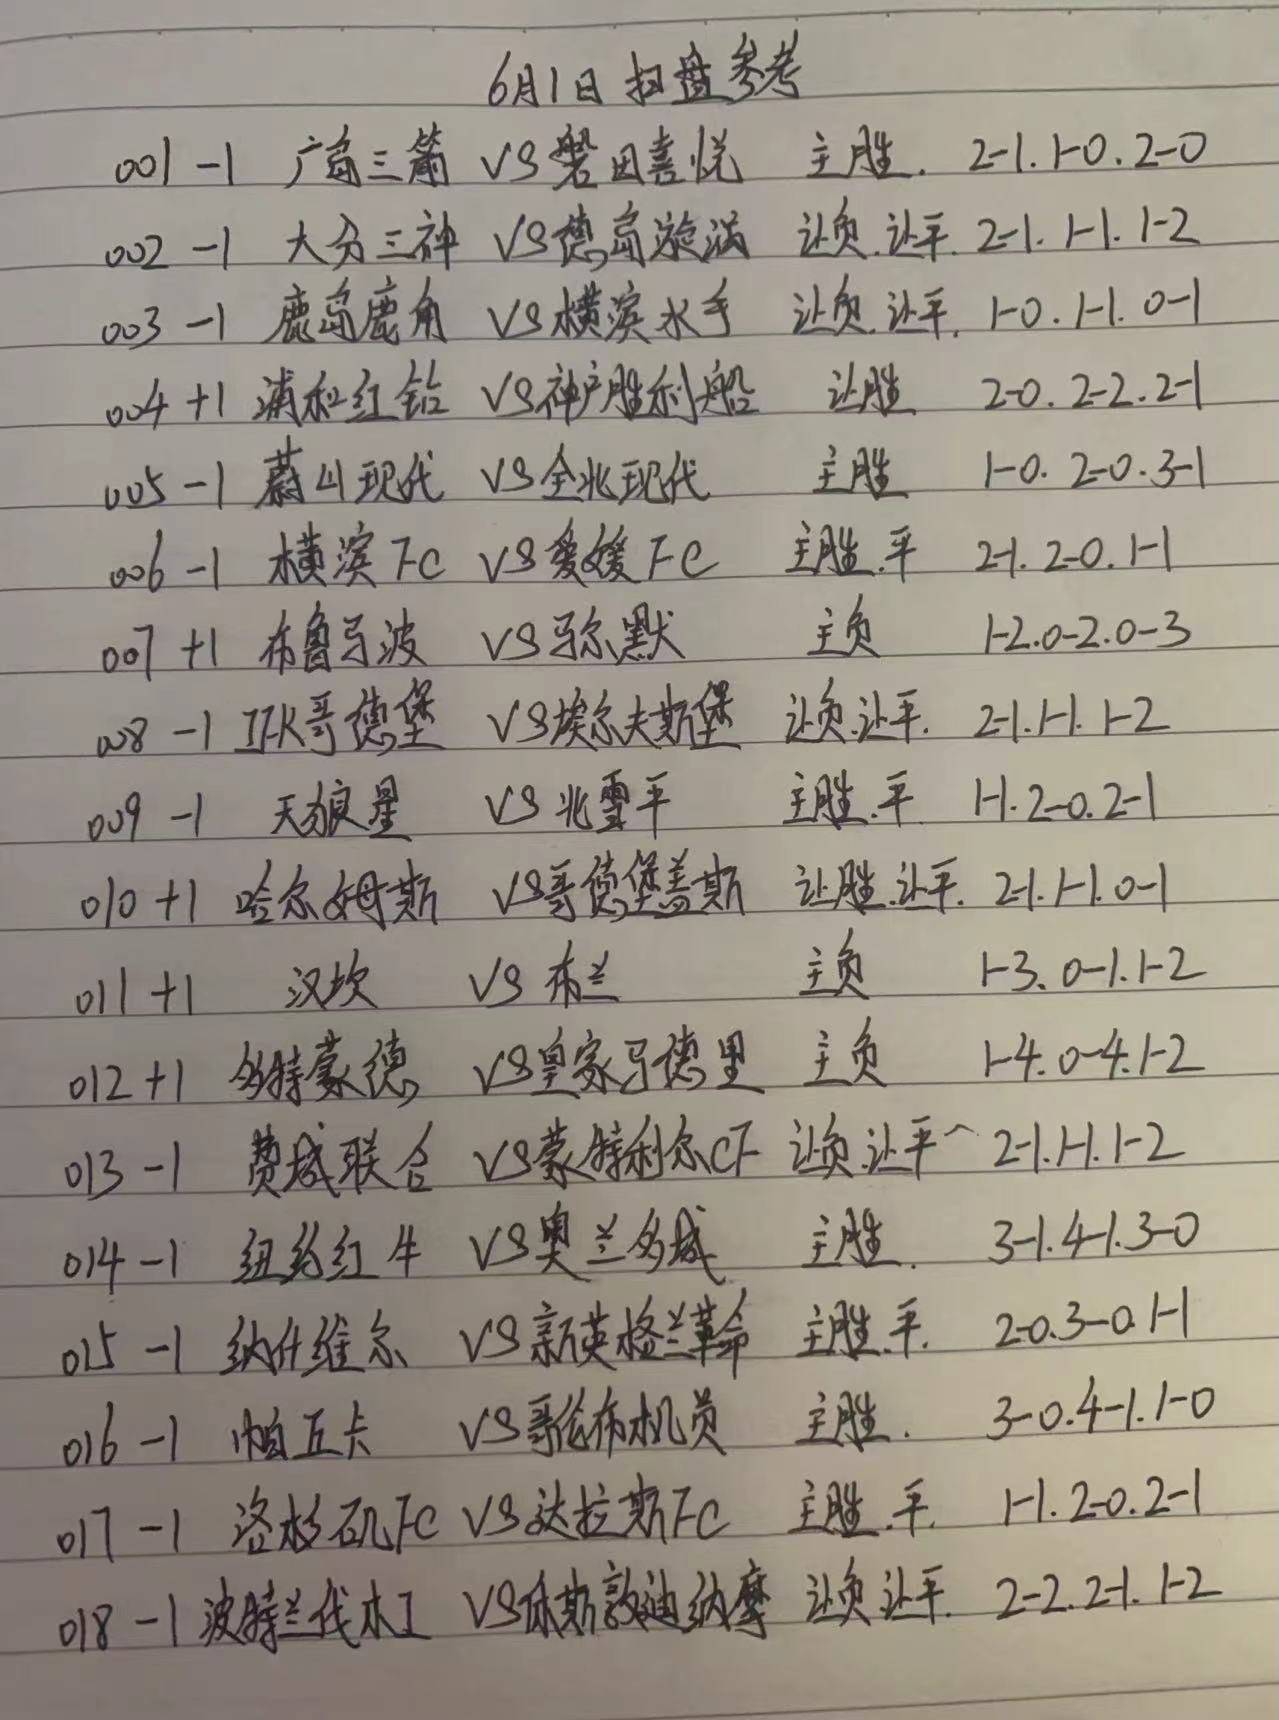 6月1日 扫盘参考
001 -1 广岛三箭 VS 磐田喜悦 主胜. 2-1. 1-0. 2-0
002 -1 大分三神 VS 德岛漩涡 让负.让平. 2-1. 1-1. 1-2
003 -1 鹿岛鹿角 VS 横滨水手 让负.让平. 1-0. 1-1. 0-1
004 +1 浦和红钻 VS 神户胜利船 让胜 2-0. 2-2. 2-1
005 -1 蔚山现代 VS 全北现代 主胜 1-0. 2-0. 3-1
006 -1 横滨FC VS 爱媛FC 主胜.平 2-1. 2-0. 1-1
007 +1 布鲁马波 VS 马尔默 主负 1-2. 0-2. 0-3
008 -1 IFK哥德堡 VS 埃尔夫斯堡 让负.让平. 2-1. 1-1. 1-2
009 -1 天狼星 VS 北雪平 主胜.平. 1-1. 2-0. 2-1
010 +1 哈尔姆斯 VS 哥德堡盖斯 让胜.让平. 2-1. 1-1. 0-1
011 +1 汉坎 VS 布兰 主负 1-3. 0-1. 1-2
012 +1 多特蒙德 VS 皇家马德里 主负 1-4. 0-4. 1-2
013 -1 费城联合 VS 蒙特利尔CF 让负.让平 2-1. 1-1. 1-2
014 -1 纽约红牛 VS 奥兰多城 主胜. 3-1. 4-1. 3-0
015 -1 纳什维尔 VS 新英格兰革命 主胜.平. 2-0. 3-0. 1-1
016 -1 帕丘卡 VS 哥伦布机员 主胜. 3-0. 4-1. 1-0
017 -1 洛杉矶FC VS 达拉斯FC 主胜.平. 1-1. 2-0. 2-1
018 -1 波特兰伐木工 VS 休斯敦迪纳摩 让负.让平. 2-2. 2-1. 1-2